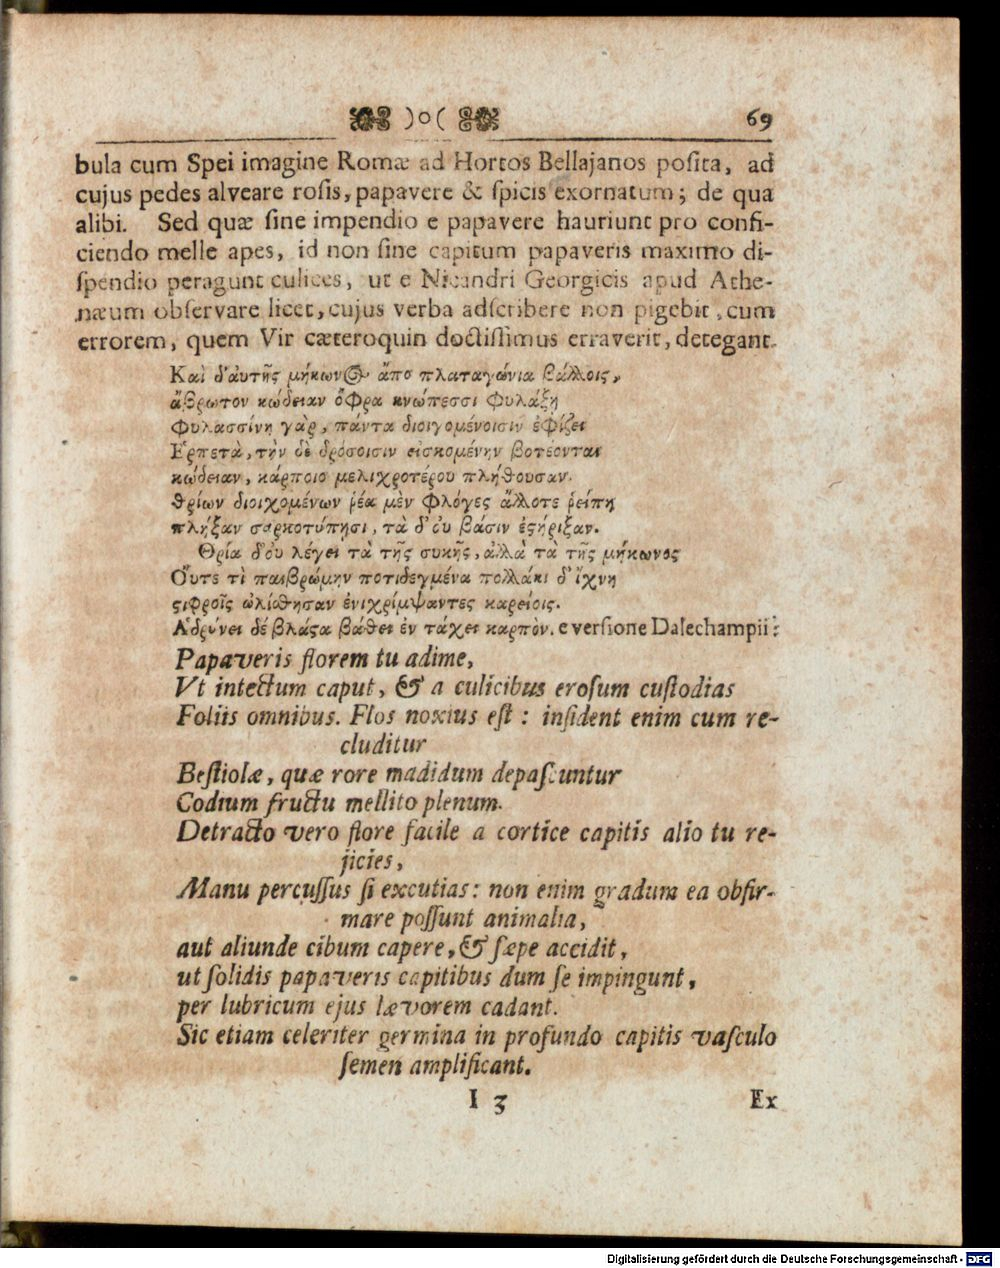 )o( 69
bula cum Spei imagine Romæ ad Hortos Bellajanos posita, ad
cujus pedes alveare rosis, papavere & spicis exornatum; de qua
alibi. Sed quæ sine impendio e papavere hauriunt pro confi-
ciendo melle apes, id non sine capitum papaveris maximo di-
spendio peragunt culices, ut e Nicandri Georgicis apud Athe-
næum observare licet, cujus verba adscribere non pigebit, cum
errorem, quem Vir cæteroquin doctissimus erraverit, detegant.
Καὶ δ'αυτῆς μήκων⊙ ἄπο πλαταγώνια βάλλοις,
ἄβρωτον κώδειαν ὄφρα κνώπεσσι φυλάξῃ
Φυλασσίνῃ γὰρ, πάντα διοιγομένοισιν ἐφίζει
Ερπετὰ, τὴν δὲ δρόσοισιν εἰσκομένην βοτέονται
κώδειαν, κάρποιο μελιχροτέρου πλήθουσαν.
θρίων διοιχομένων ῥέα μὲν φλόγες ἄλλοτε ῥείπῃ
πλήξαν σαρκοτύπησι, τὰ δ'ου βάσιν ἐςήριξαν.
Θρία δ'ου λέγει τὰ τῆς συκῆς, ἀλλὰ τὰ τῆς μήκωνος
Οὔτε τὶ παιβρώμην ποτιδεγμένα πολλάκι δ'ἴχνη
ςιφροῖς ὠλίσθησαν ἐνιχρίμψαντες καρείοις.
Αδρύνει δέ βλάςα βάθει ἐν τάχει καρπὸν. e versione Dalechampii:
Papaveris florem tu adime,
Vt intectum caput, & a culicibus erosum custodias
Foliis omnibus. Flos noxius est: insident enim cum re-
cluditur
Bestiolæ, quæ rore madidum depascuntur
Codium fructu mellito plenum.
Detracto vero flore facile a cortice capitis alio tu re-
jicies,
Manu percussus si excutias: non enim gradum ea obfir-
mare possunt animalia,
aut aliunde cibum capere, & sæpe accidit,
ut solidis papaveris capitibus dum se impingunt,
per lubricum ejus lævorem cadant.
Sic etiam celeriter germina in profundo capitis vasculo
semen amplificant.
I 3 Ex
Digitalisierung gefördert durch die Deutsche Forschungsgemeinschaft - DFG